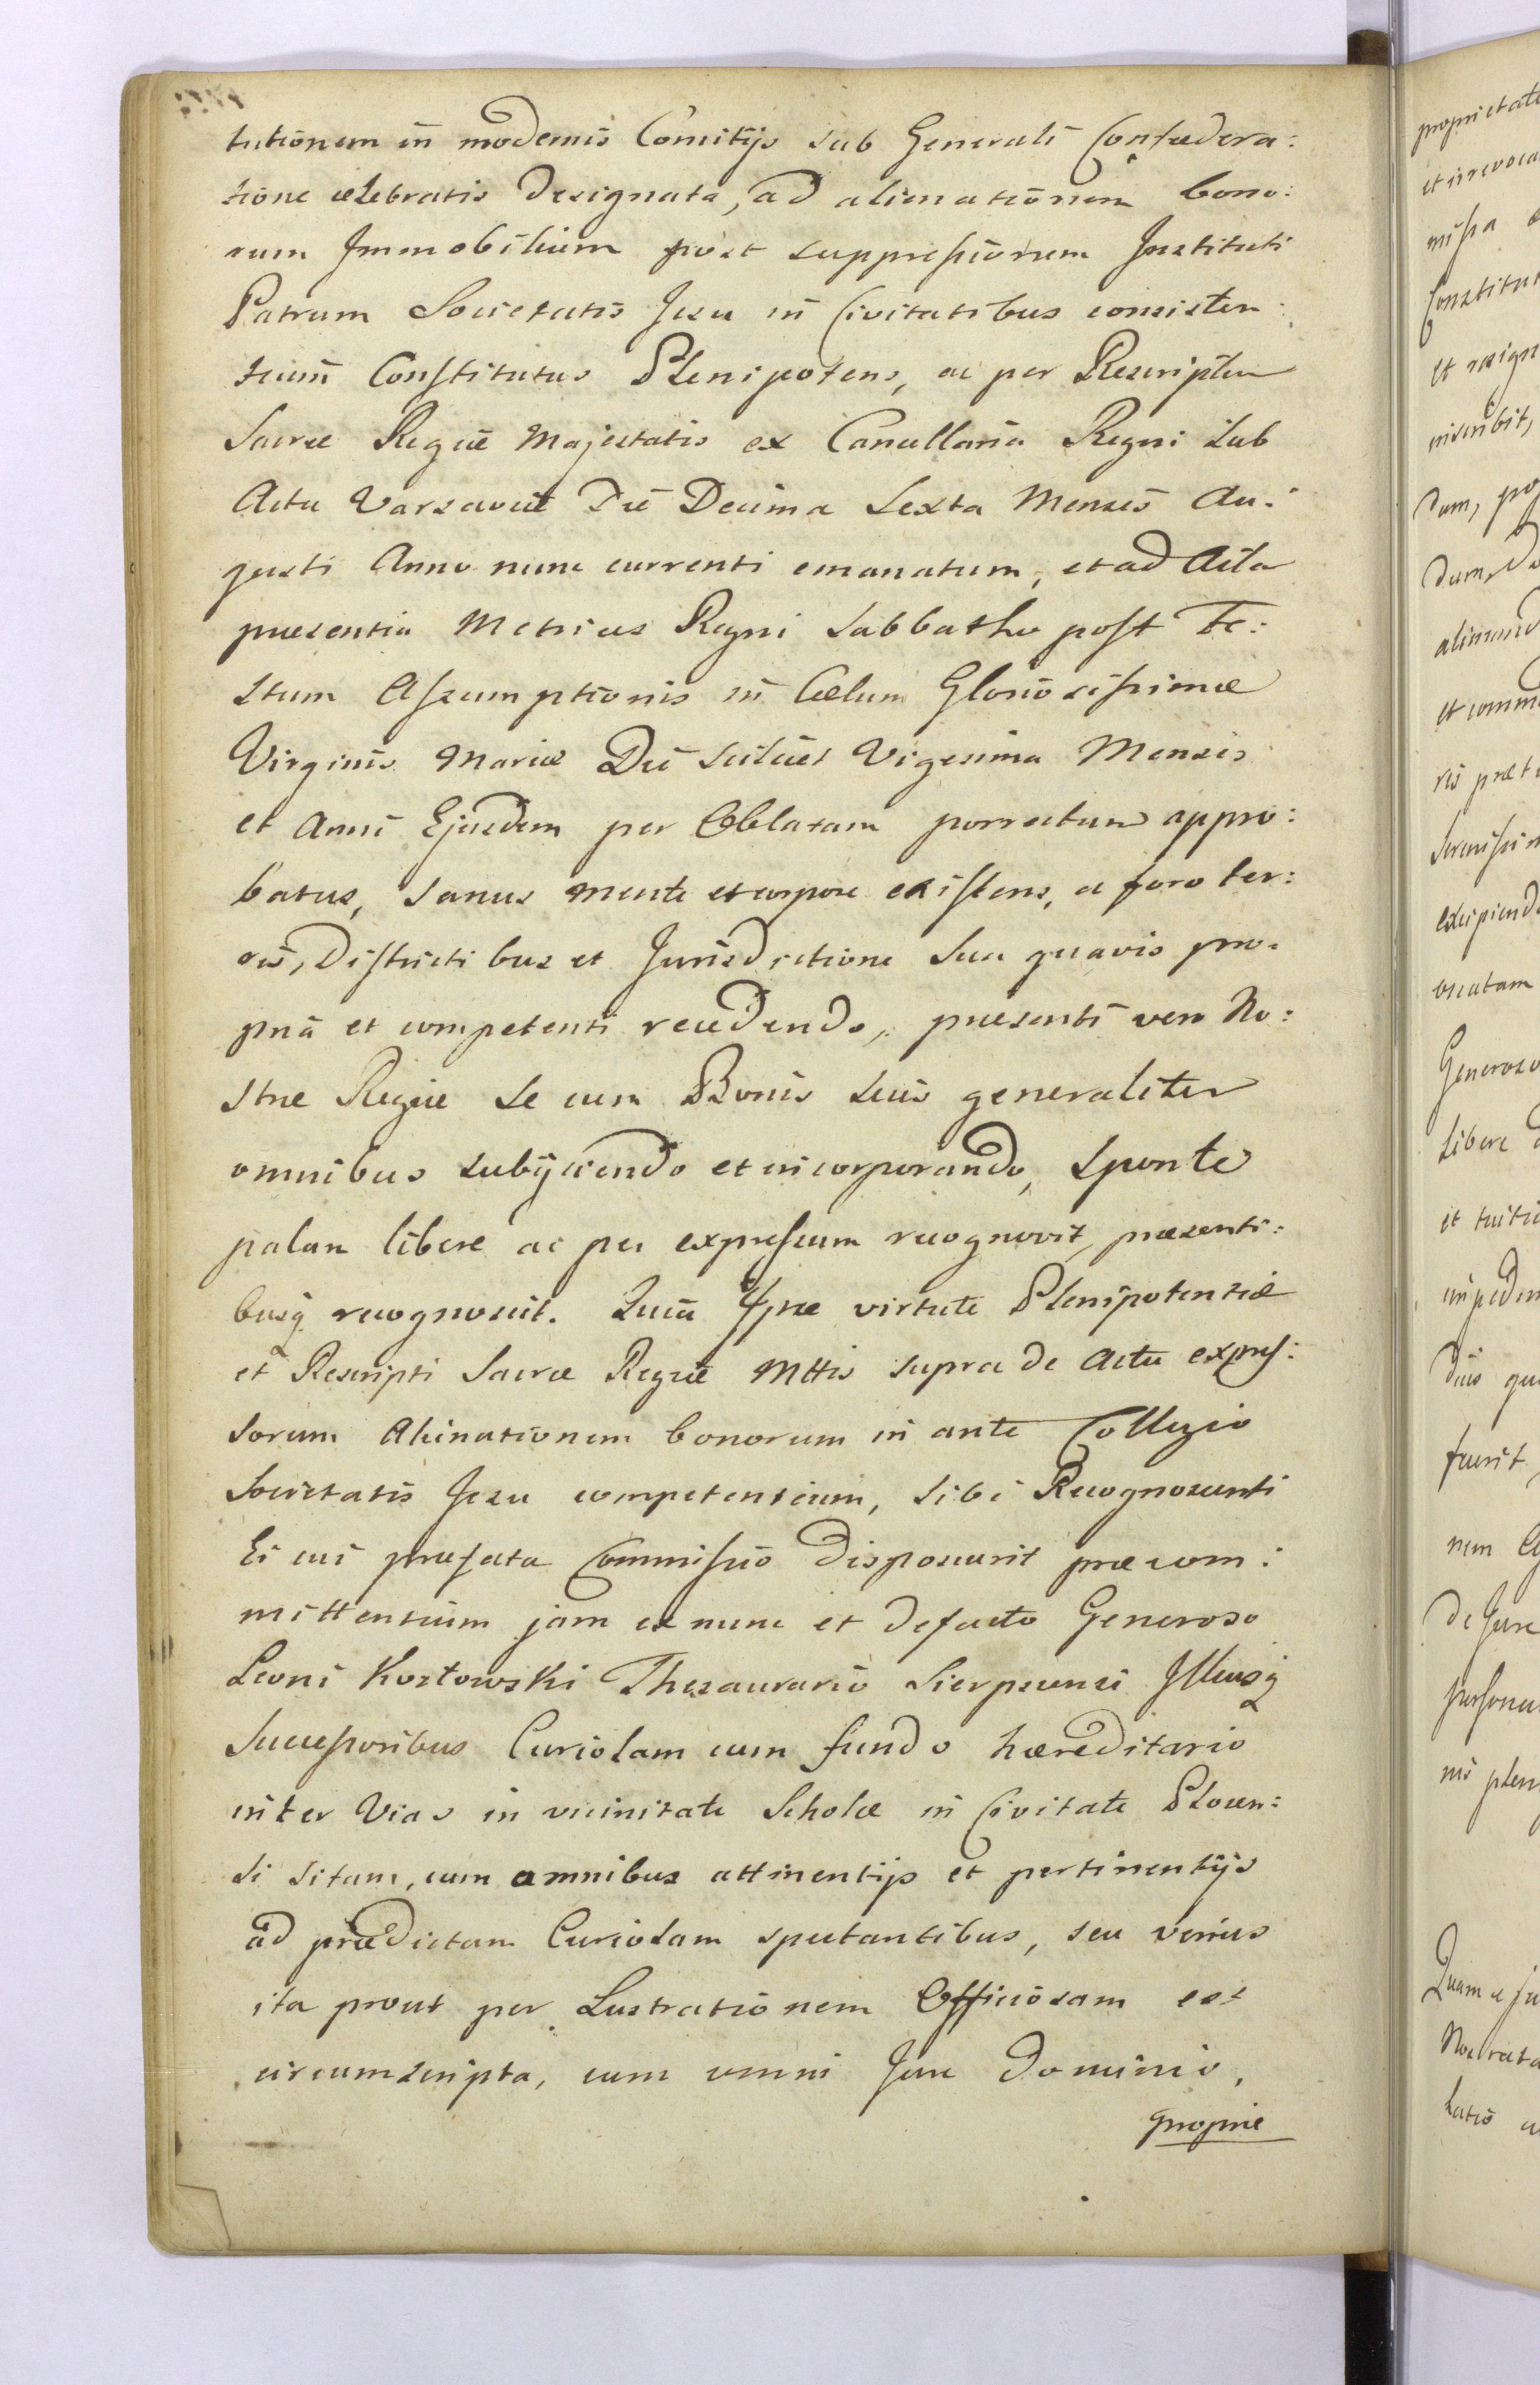 tutionem in modernis Comitijs sub Generali Confœdera:
tione celebratis designata, ad alienationem bono:
rum Immobilium post suppressionem Instituti
Patrum Societatis Jesu in Civitatibus consisten:
tium Constitutus Plenipotens, ac per Rescriptum
Sacræ Regiæ Majestatis ex Cancellaria Regni sub
Actu Varsaviæ Die Decima Sexta Mensis Au:
gusti Anno nunc currenti emanatum, et ad Acta
præsentia Metrices Regni Sabbatho post Fe:
stum Assumptionis in Cœlum Gloriosissimæ
Virginis Mariæ Die scilicet Vigesima Mensis
et Anni Ejusdem per Oblatam porrectum appro:
batus, sanus mente et corpore existens, a foro ter:
ris, Districtibus et Jurisdictione sua quavis pro:
pria et competenti recedendo, præsenti vero No:
stræ Regiæ se cum Bonis suis generaliter
omnibus subijciendo et incorporando, sponte
palam libere ac per expressum recognovit, præsenti:
busq recognoscit. Quia Ipse virtute Plenipotentiæ
et Rescripti Sacræ Regiæ Mttis supra de Actu expres:
sorum Alienationem bonorum in ante Collegio
Societatis Jesu competentium, sibi Recognoscenti
Ei cui præfata Commissio disposuerit præcom:
mittentium jam ex nunc et defacto Generoso
Leoni Kozłowski Thesaurario Sierpcensi Illiusq
Successoribus Curiolam cum fundo hæreditario
inter Vias in vicinitate Scholæ in Civitate Plocen:
si sitam, cum omnibus attinentijs et pertinentijs
ad prædictam Curiolam spectantibus, seu verius
ita prout per Lustrationem Officiosam est
circumscripta, cum omni Jure dominio,
proprie
proprietate
et irrevoca
missa
Constitut
et resign
inscribit,
dum, po
dum,
et comm
ris præt
Serenissim
excipiend
Generoso
Libere
et tuitio
impedim
fuerit
nem
de Jure
persona
nis plen